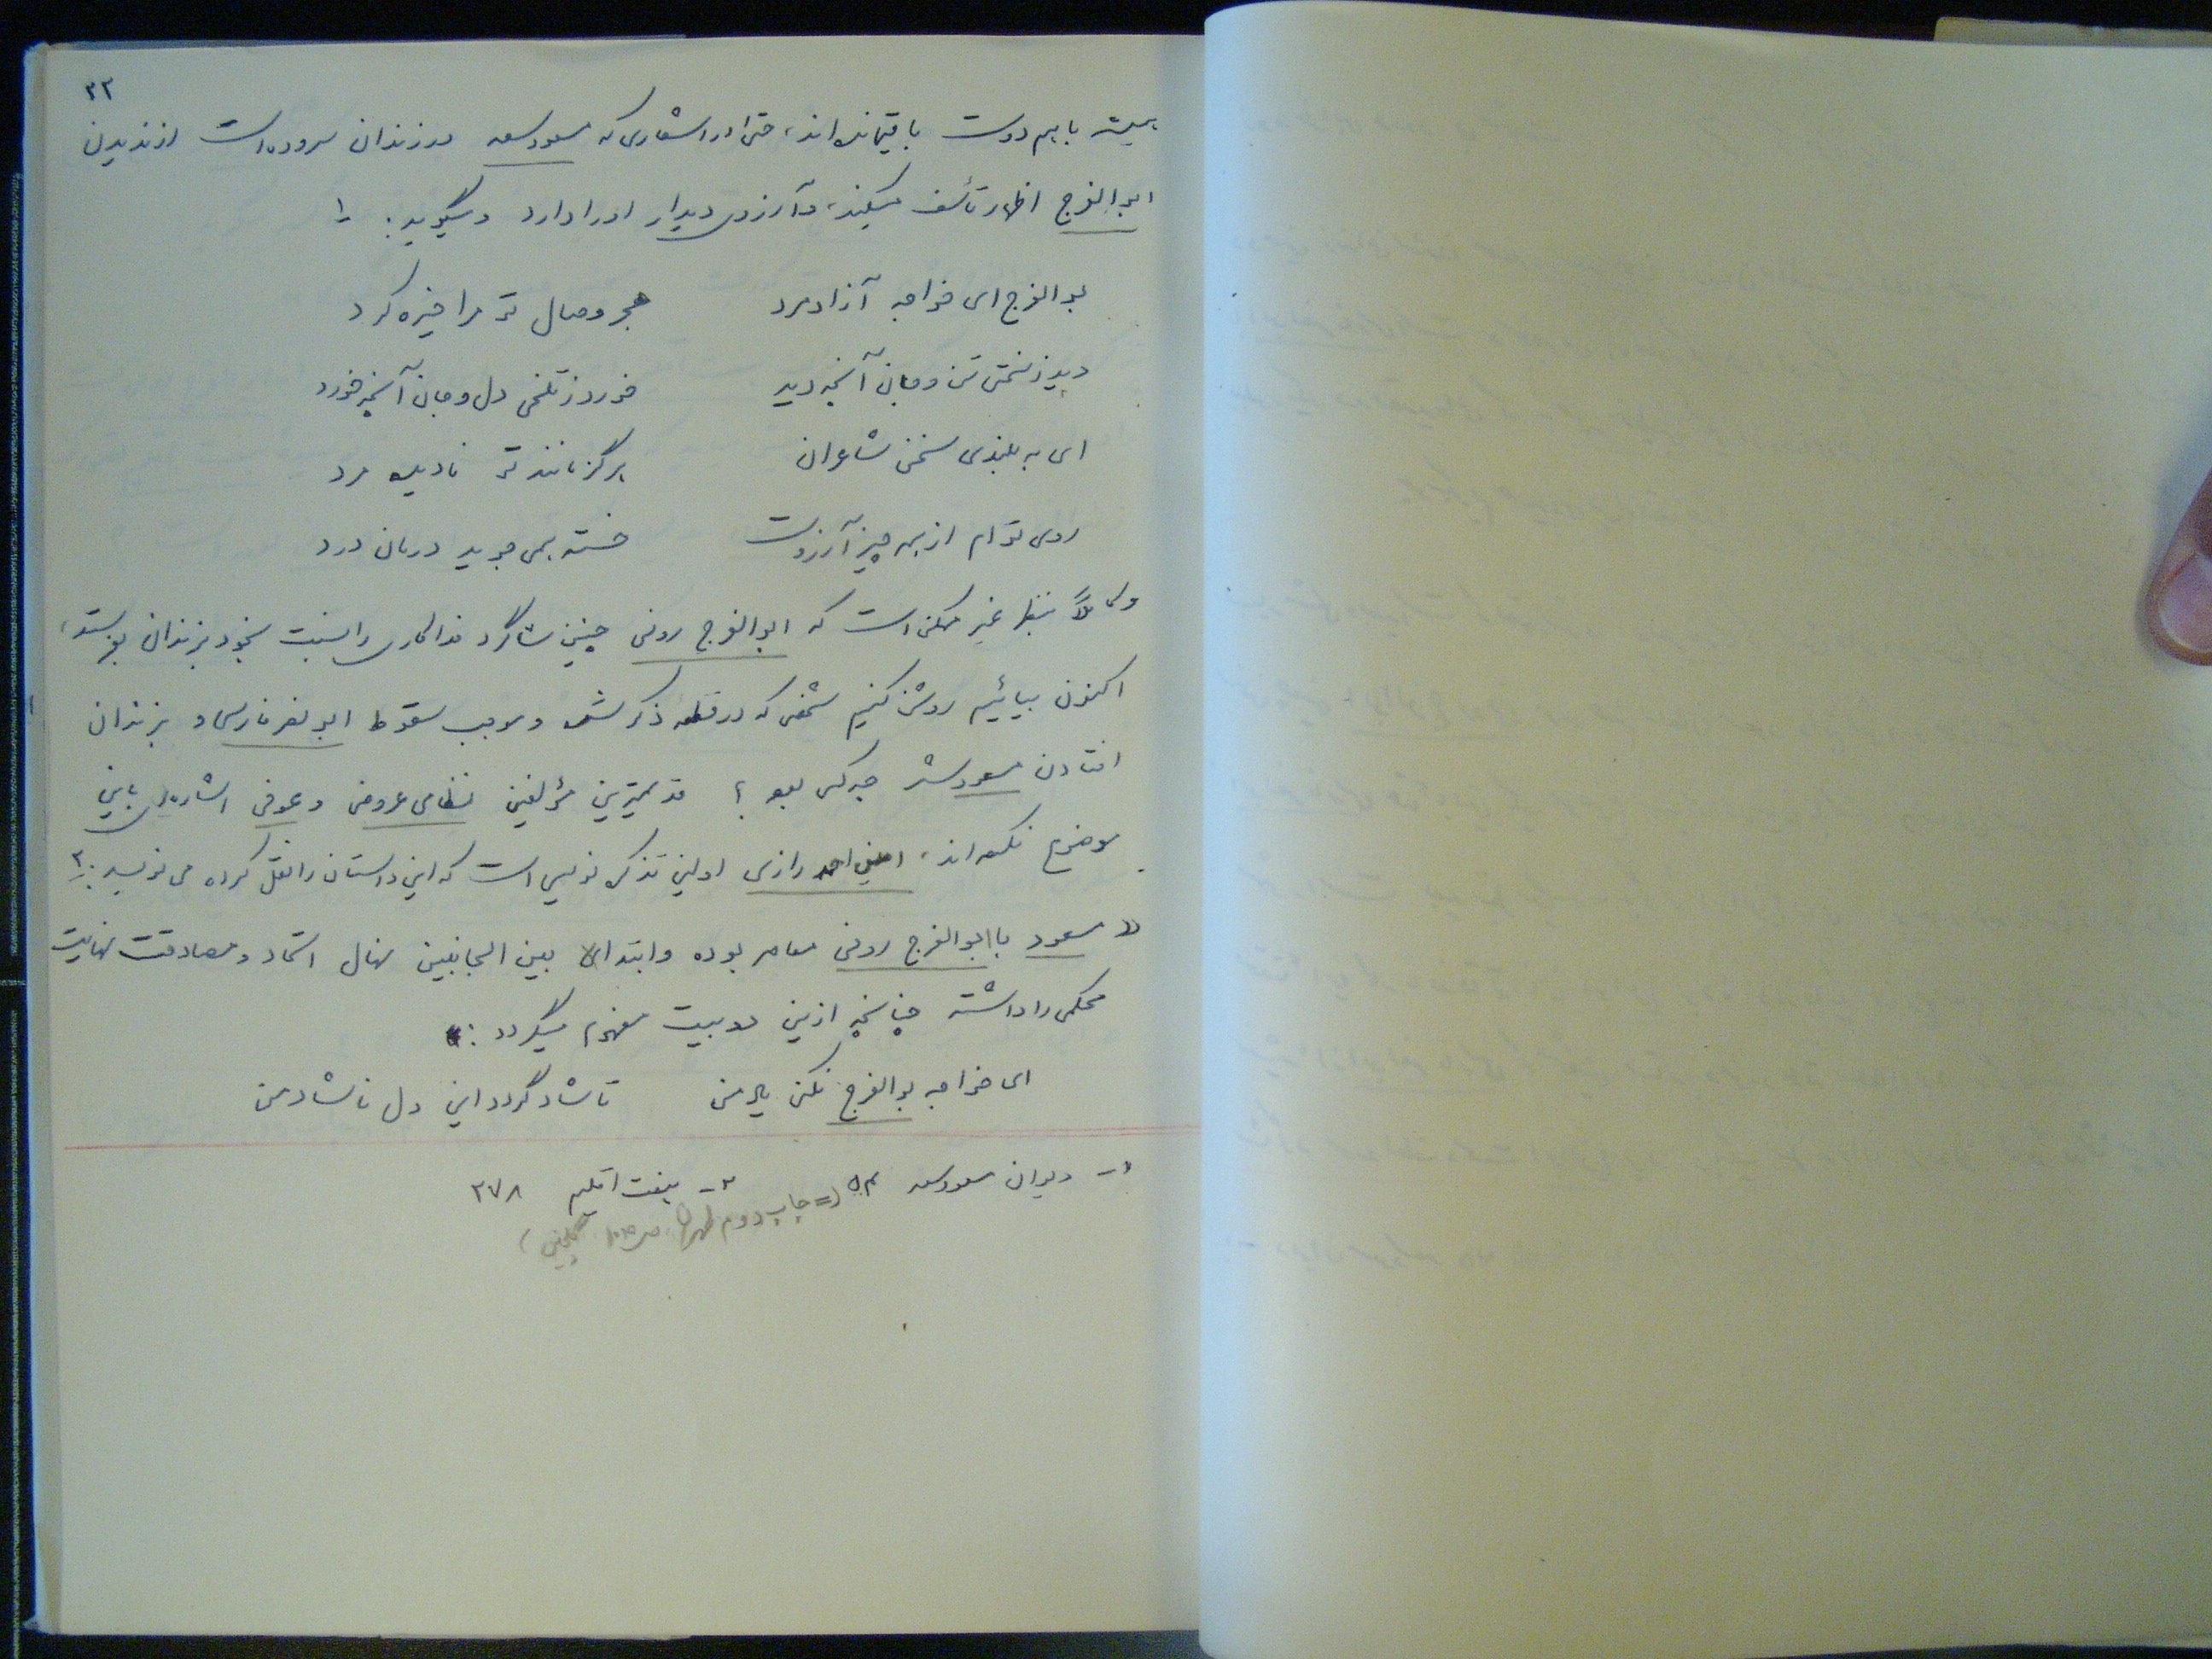 ۳۲
همیشه باهم دوست باقیمانده‌اند، حتی در اشعاری که مسعود سعد در زندان سروده‌است از ندیدن
ابوالفرج اظهار تأسف میکند، و آرزوی دیدار او را دارد و میگوید: ۱
بوالفرج ای خواجه آزادمرد هجر و وصال تو مرا خیره کرد
دید ز سختی تن و جان آنچه دید خورد ز تلخی دل و جان آنچه خورد
ای به بلندی سخن شاعران هرگز مانند تو نادیده مرد
روی توام از همه چیز آرزوست خسته همی جوید درمان درد
و کاملاً بنظر غیر ممکن است که ابوالفرج رونی چنین شاگرد فداکاری را نسبت بخود بزندان بفرستد،
اکنون بیائیم روشن کنیم شخصی که در قطعه ذکر شده و موجب سقوط ابونصر فارسی و بزندان
افتادن مسعود شد چه کس بود؟ قدیمترین مؤلفین نظامی عروضی و عوفی اشاره‌ای باین
موضوع نکرده‌اند، امین احمد رازی اولین تذکره نویس است که این داستان را نقل کرده می نویسد: ۲
«مسعود با ابوالفرج رونی معاصر بوده و ابتدای بین الجانبین نهال اتحاد و مصادقت نهایت
محکمی را داشته چنانچه ازین دو بیت مفهوم میگردد:
ای خواجه بوالفرج نکنی یاد من تا شاد گردد این دل ناشاد من
۱- دیوان مسعود سعد ۵۸ ۲- هفت اقلیم ۲۷۸
(= چاپ دوم طهران، ص